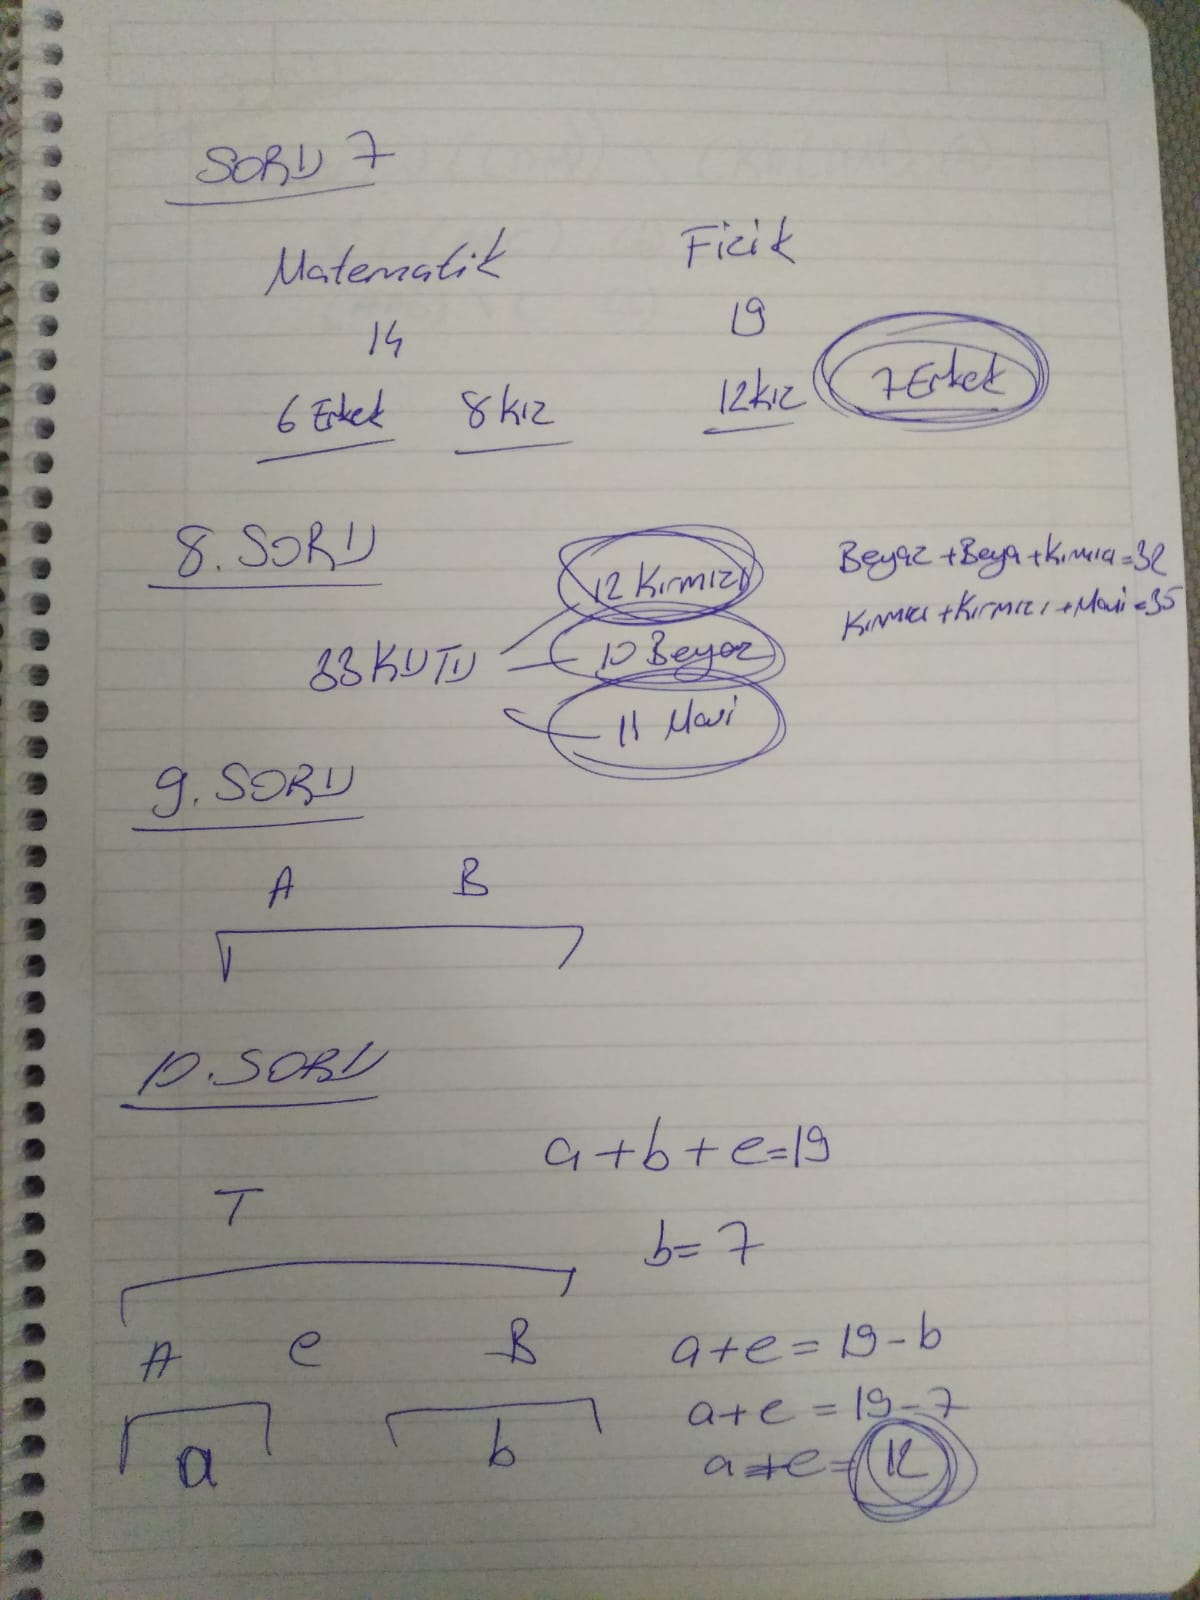 SORU 7
Matematik Fizik
14 19
6 Erkek 8 kız 12 kız 7 Erkek
8. SORU
12 Kırmızı
33 KUTU 10 Beyaz
11 Mavi
Beyaz + Beya + Kırmızı = 32
Kırmızı + Kırmızı + Mavi = 35
9. SORU
A B
10. SORU
T
A e B
a b
a + b + e = 19
b = 7
a + e = 19 - b
a + e = 19 - 7
a + e = 12